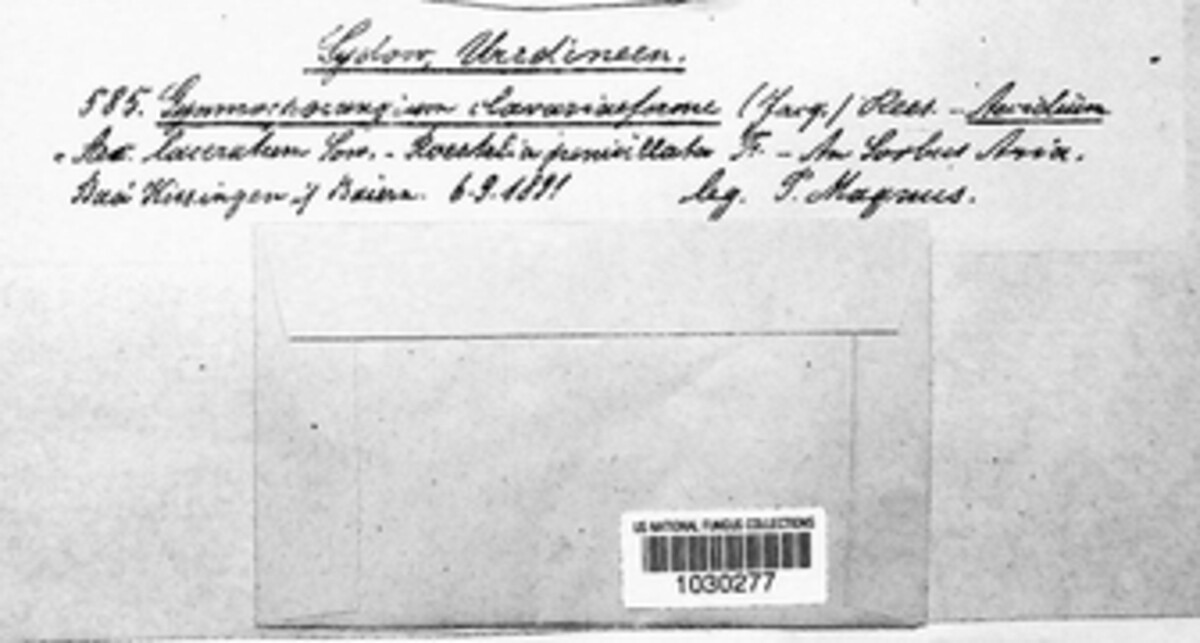 Sydow, Uredineen.
585. Gymnosporangium clavariaeforme (Jacq.) Rees. - Aecidium
= Aec. laceratum Sow. - Roestelia penicillata Fr. - An Sorbus Aria.
Bad Kissingen i/ Baiern. 6.9.1891 leg. P. Magnus.
US NATIONAL FUNGUS COLLECTIONS
1030277